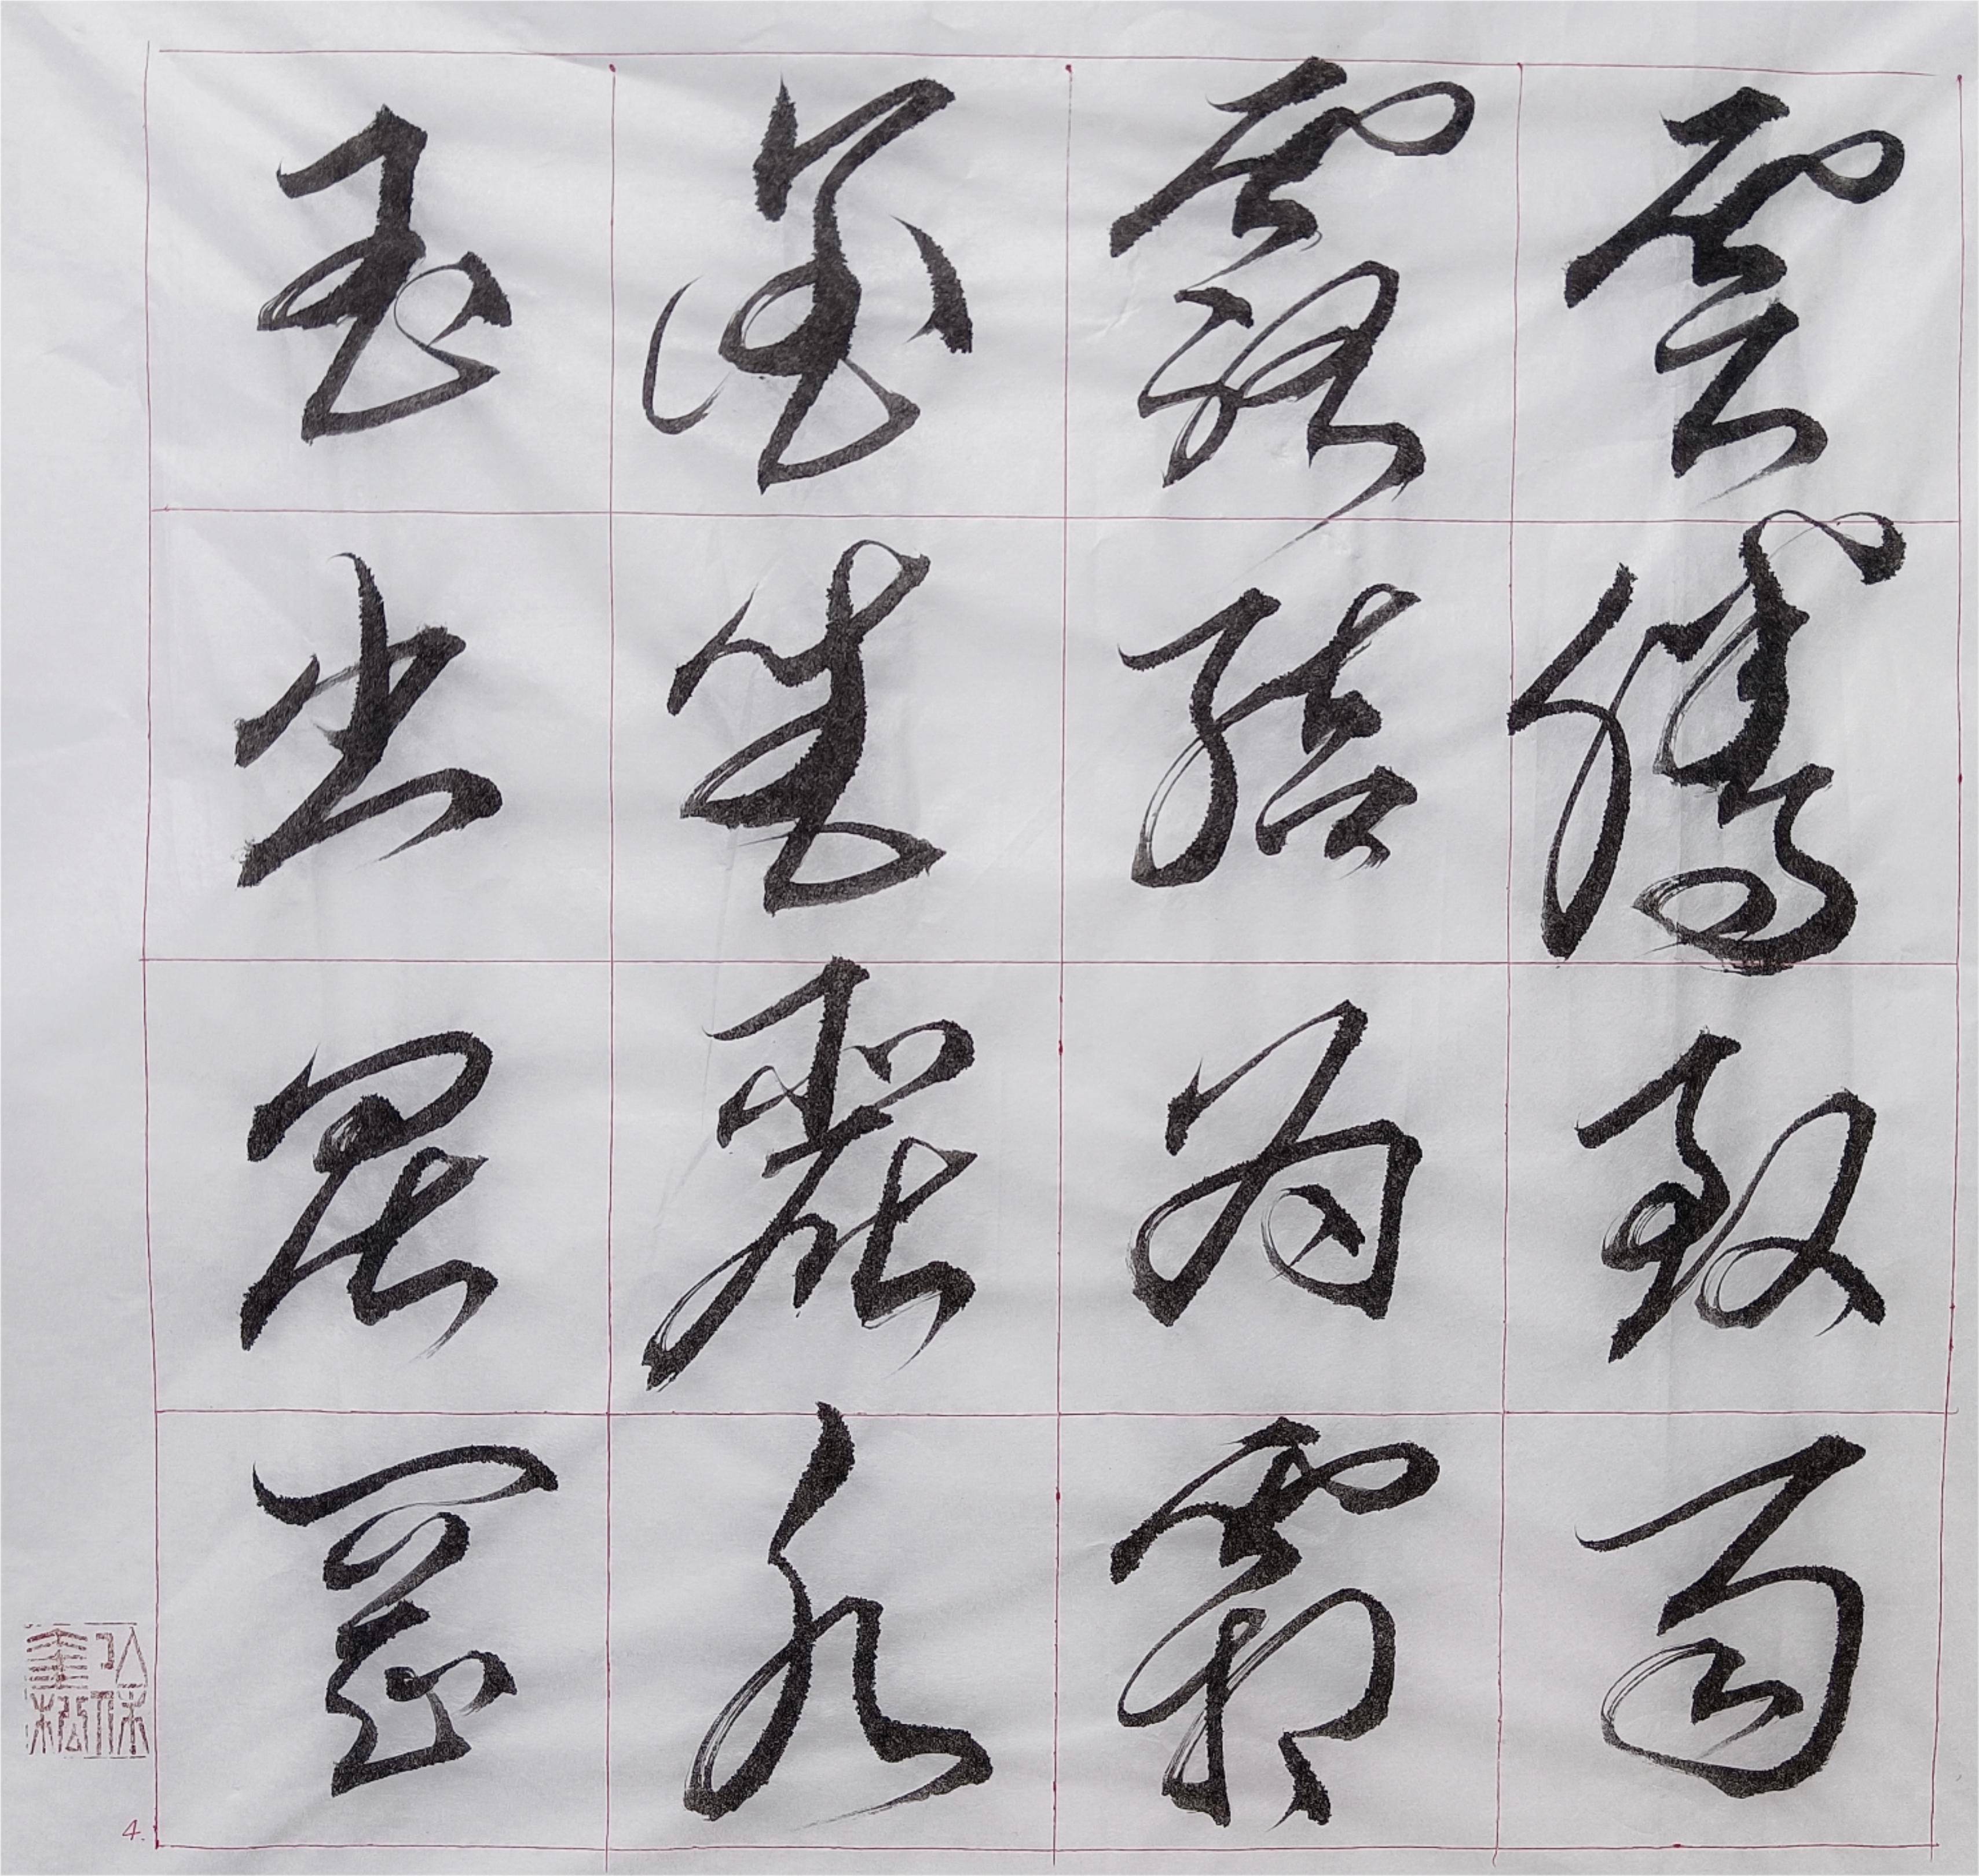 雲騰致雨
露結為霜
金生麗水
玉出崑崗
4.